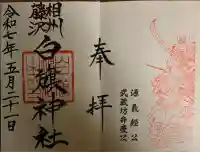 奉拝
相州
藤沢
白旗神社
令和七年五月二十一日
源義経公
武蔵坊弁慶公